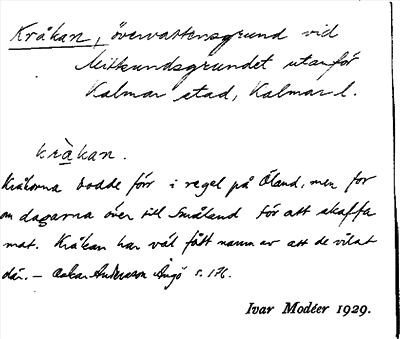 Kråkan, övervattensgrund vid
Mittsundsgrundet utanför
Kalmar stad, Kalmar l.
kråkan.
Kråkorna bodde förr i regel på Öland, men for
om dagarna över till Småland för att skaffa
mat. Kråkan har väl fått namn av att de vilat
där. – Oskar Andersson Ängö s. 176.
Ivar Modéer 1929.